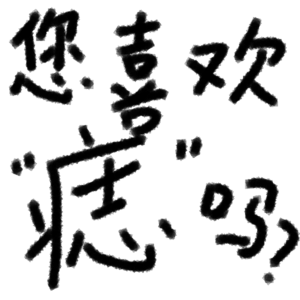 您喜欢
"痣"吗?